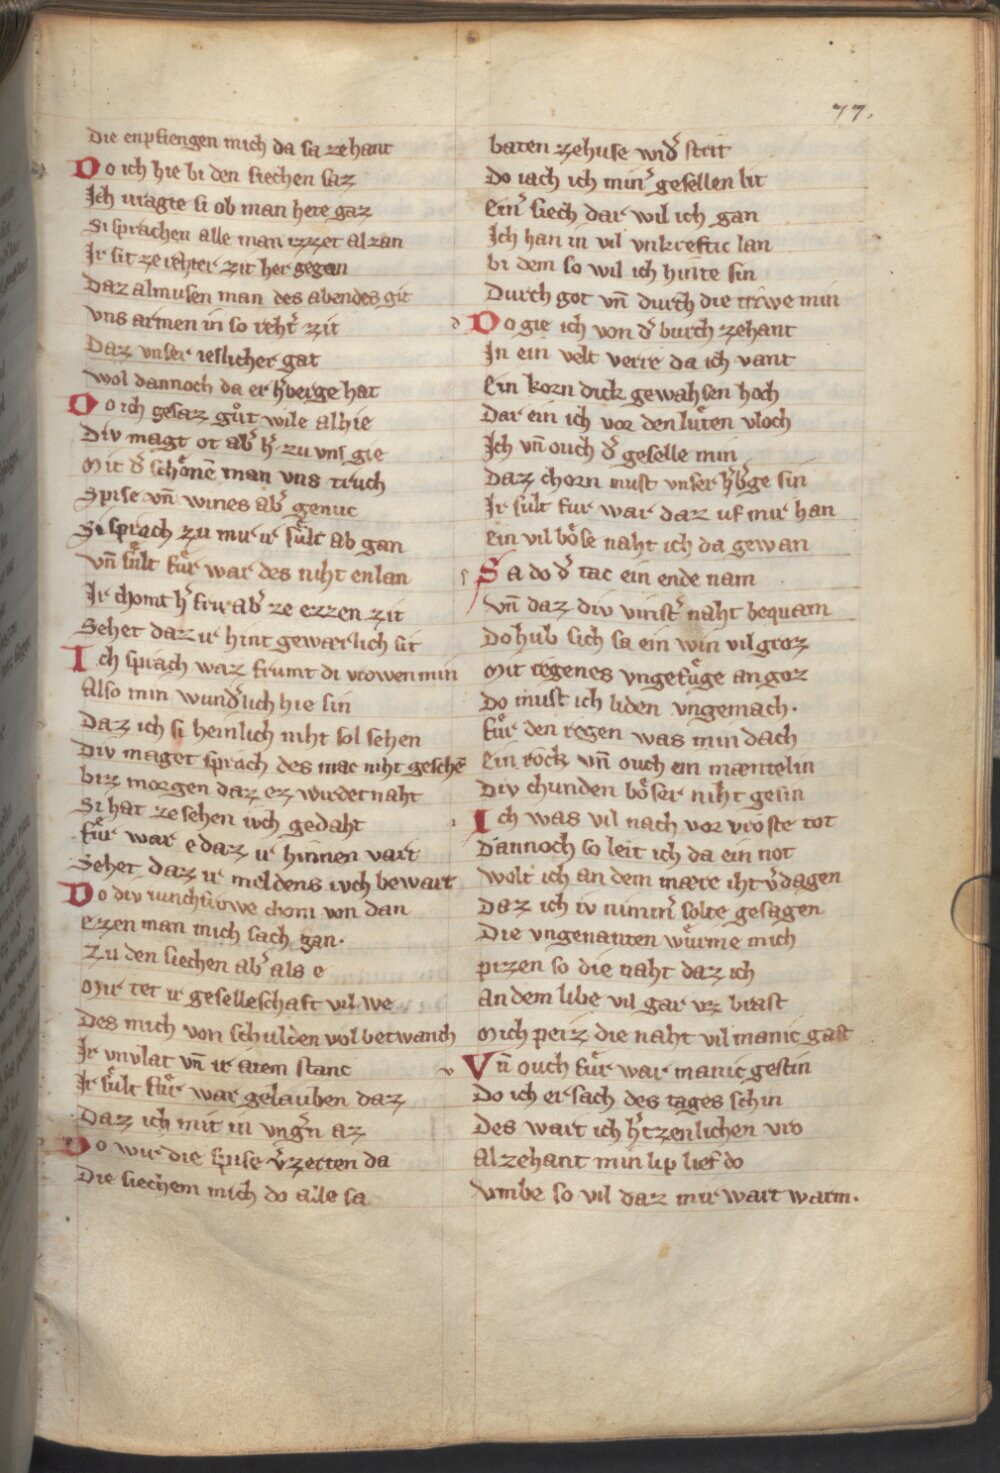 77.
Die enpfiengen mich da sa zehant
Do ich hie bi den siechen saz
Ich vragte si ob man hete gaz
Si sprachen alle man izzet alzan
Ir sit ze rehter zit her gegan
Daz almusen man des abendes git
vns armen in so rehtˀ zit
Daz vnser ieslicher gat
wol dannoch da er hˀberge hat
Do ich gesaz guͦt wile alhie
Div magt ot abˀ hˀ zu vns gie
Mit dˀ schoͤnē man vns truch
Spise vn̄ wines abˀ genuc
Si sprach zu mir ir suͤlt ab gan
vn̄ suͤlt fuͤr war des niht enlan
Ir chomt hˀ fur abˀ ze ezzen zit
Sehet daz ir hint gewarlich sit
Ich sprach waz frumt di vrowen min
Also min wundˀlich hie sin
Daz ich si heinlich niht sol sehen
Div maget sprach des mac niht geschē
biz morgen daz ez wirdet naht
Si hat ze sehen ivch gedaht
fuͤr war e daz ir hinnen vart
Sehet daz ir meldens ivch bewart
Do div iunchfrowe chom von dan
ezzen man mich sach gan.
Zu den siechen abˀ als e
Mir tet ir geselleschaft vil we
Des mich von schulden wol betwanch
Ir vnvlat vn̄ ir atem stanc
Ir suͤlt fuͤr war gelauben daz
Daz ich mit in vngˀn az
Do wir die spise vˀzerten da
Die siechem mich do alle sa
baten zehuse widˀ strit
Do iach ich minˀ gesellen lit
Einˀ siech dar wil ich gan
Ich han in vil vnkreftic lan
bi dem so wil ich hinte sin
Durch got vn̄ durch die triwe min
Do gie ich von dˀ burch zehant
In ein velt verre da ich vant
Ein korn dick gewahsen hoch
Dar ein ich vor den luͤten vloch
Ich vn̄ ouch dˀ geselle min
Daz chorn must vnser hˀbˀge sin
Ir sult fur war daz uf mir han
Ein vil boͤse naht ich da gewan
Sa do dˀ tac ein ende nam
vn̄ daz div vinstˀ naht bequam
Do hub sich sa ein win vil groz
Mit regenes vngefuͤge an goz
Do must ich liden vngemach.
fuͤr den regen was min dach
Ein rock vn̄ ouch ein mæntelin
Div chunden boͤser niht gesin
Ich was vil nach vor vroste tot
Dannoch so leit ich da ein not
wolt ich an dem mære iht vˀdagen
Daz ich iv nimmˀ solte gesagen
Die vngenanten wuͤrme mich
pizen so die naht daz ich
An dem libe vil gar vz brast
Mich peiz die naht vil manic gast
Vn̄ ouch fuͤr war manic gestin
Do ich ersach des tages schin
Des wart ich hˀtzenlichen vro
Alzehant min lip lief do
vmbe so vil daz mir wart warm.